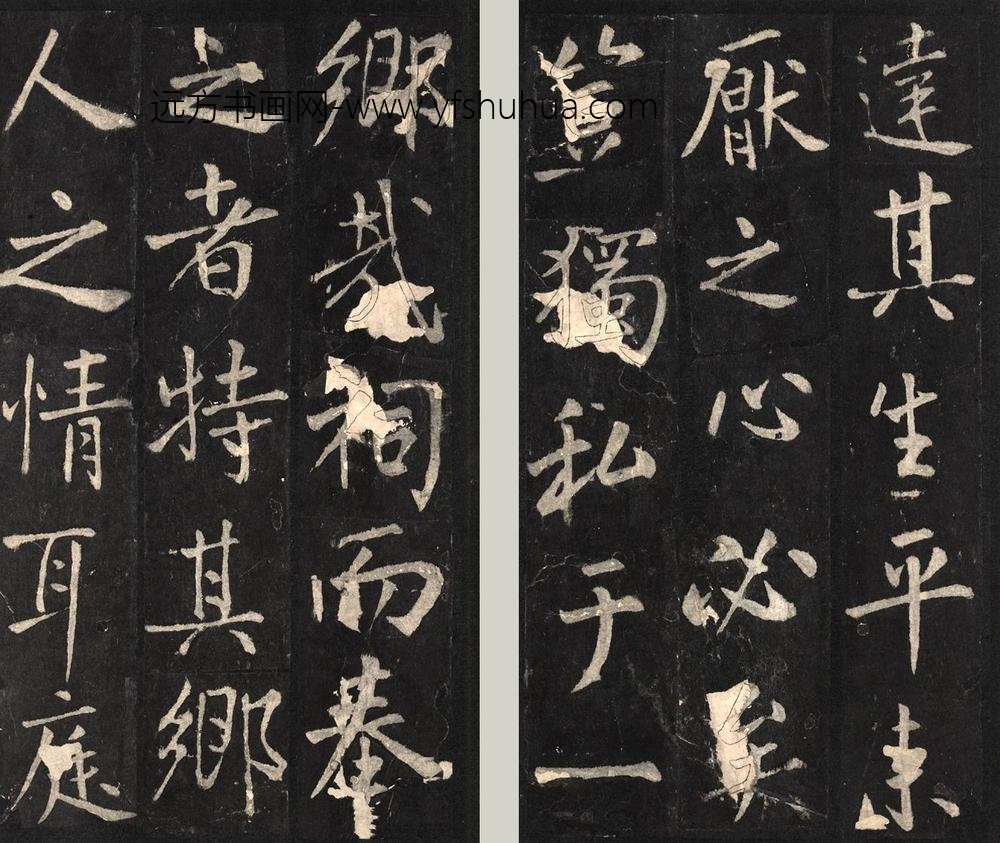 達其生平未
厭之心必矣
豈獨私于一
鄉哉祠而奉
之者特其鄉
人之情耳庭
远方书画网-www.yfshuhua.com